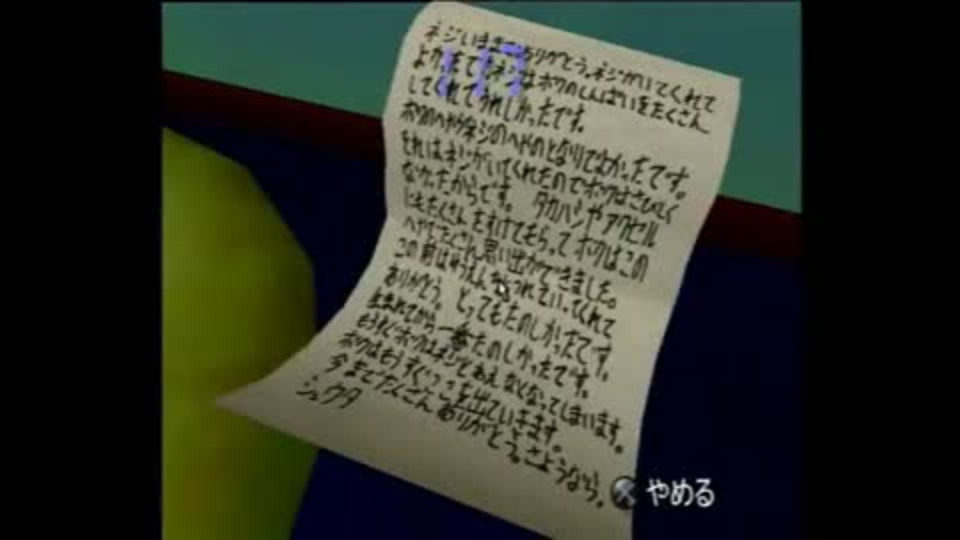 ネジいままでありがとう。ネジがいてくれて
よかったです。ネジはボクのしんぱいをたくさん
してくれてうれしかったです。
ボクのへやがネジのへやのとなりでよかったです。
それはネジがいてくれたのでボクはさびしく
なかったからです。 タカハシやアクセル
にもたくさんたすけてもらってボクはこの
へやでたくさん思い出ができました。
この前はゆうえんちにつれていってくれて
ありがとう。とってもたのしかったです。
生まれてから一番たのしかったです。
もうすぐボクはネジとあえなくなってしまいます。
ボクはもうすぐここを出ていきます。
今までたくさんありがとう。さようなら。
シュウタ
やめる